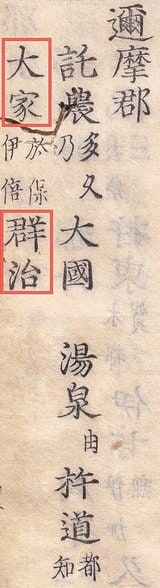 邇摩郡
託農多久乃 大國 湯泉由 杵道都知
大家於保伊倍 群治